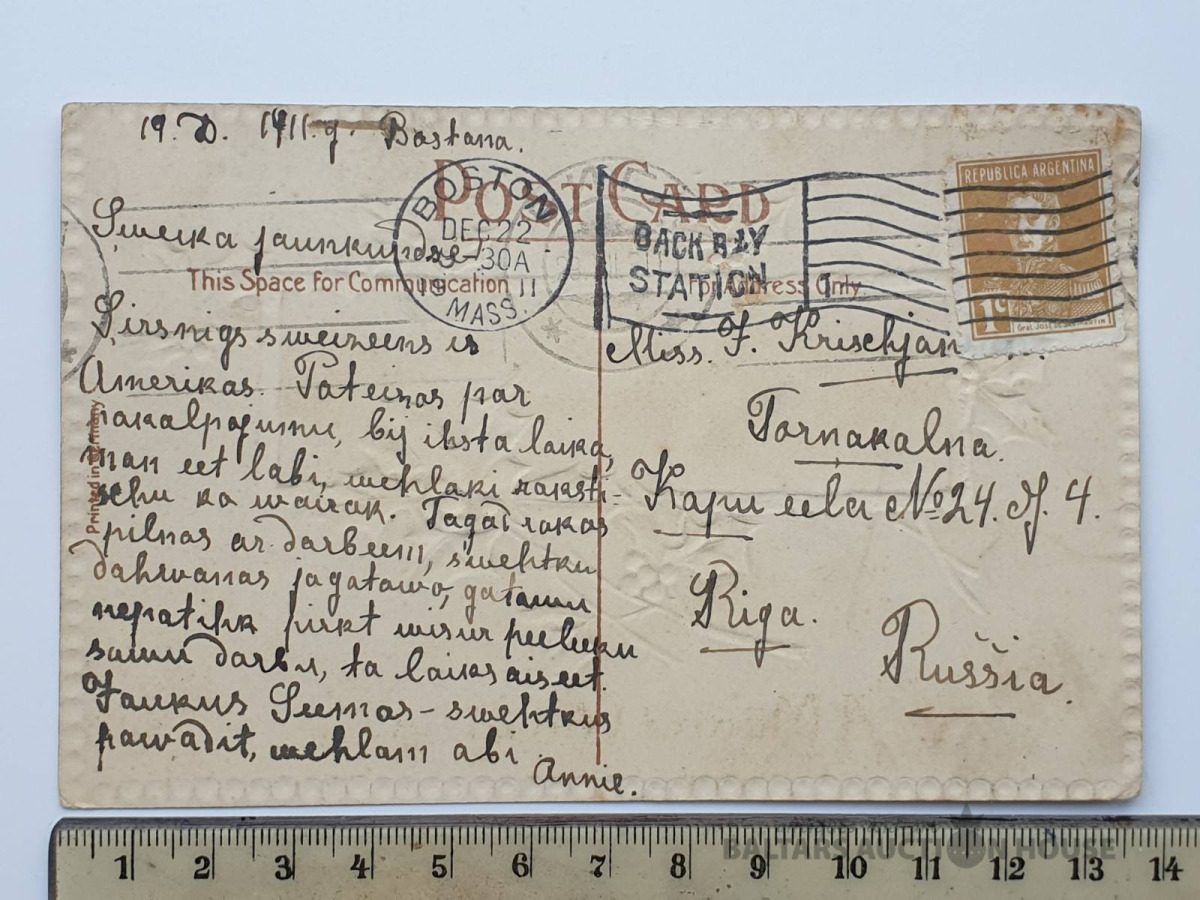 19. D. 1911. g. Bostana.
POST CARD
BOSTON
DEC 22
30A
19 11
MASS.
BACK BAY
STATION
1
REPUBLICA ARGENTINA
1c
Gral. José de San Martin
This Space for Communication
For Address Only
Printed in Germany
Sweika jaunkundse
Sirsnigs sweizeens is
Amerikas. Pateizos par
nakalpojumu, bij ihsta laika,
man eet labi, wehlaki raksti-
schu ko wairak. Tagad rokas
pilnas ar darbeem, swehtku
dahwanas jagatawo, gatawu
nepatihk pirkt wisur peeleeku
sawu darbu, ta laiks aiseet.
Jaukus Seemas-swehtkus
pawadit, wehlam abi
Annie.
Miss. F. Krischjan
Tornakalna.
Kapu eela No 24. dz. 4.
Riga.
Russia.
BALTARS AUCTION HOUSE
1 2 3 4 5 6 7 8 9 10 11 12 13 14